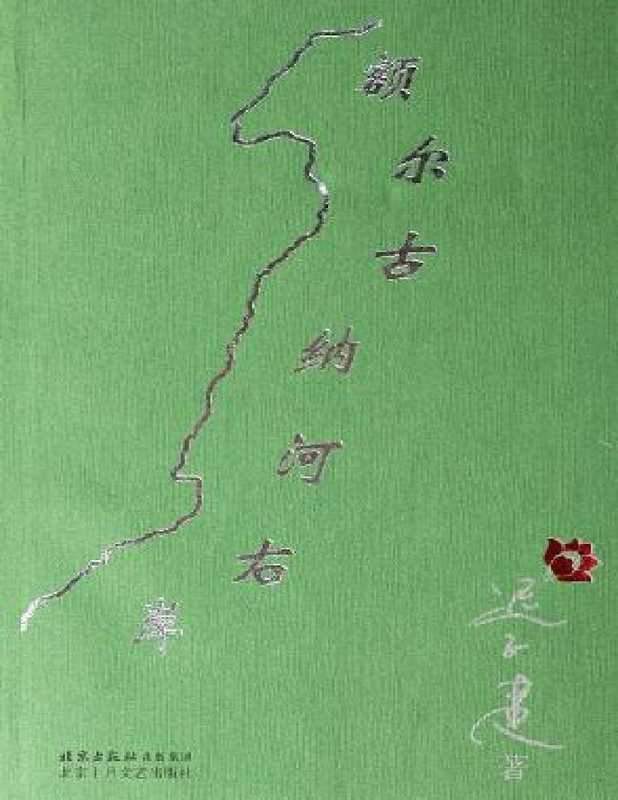 额尔古纳河右岸
迟子建
著
北京出版社出版集团
北京十月文艺出版社